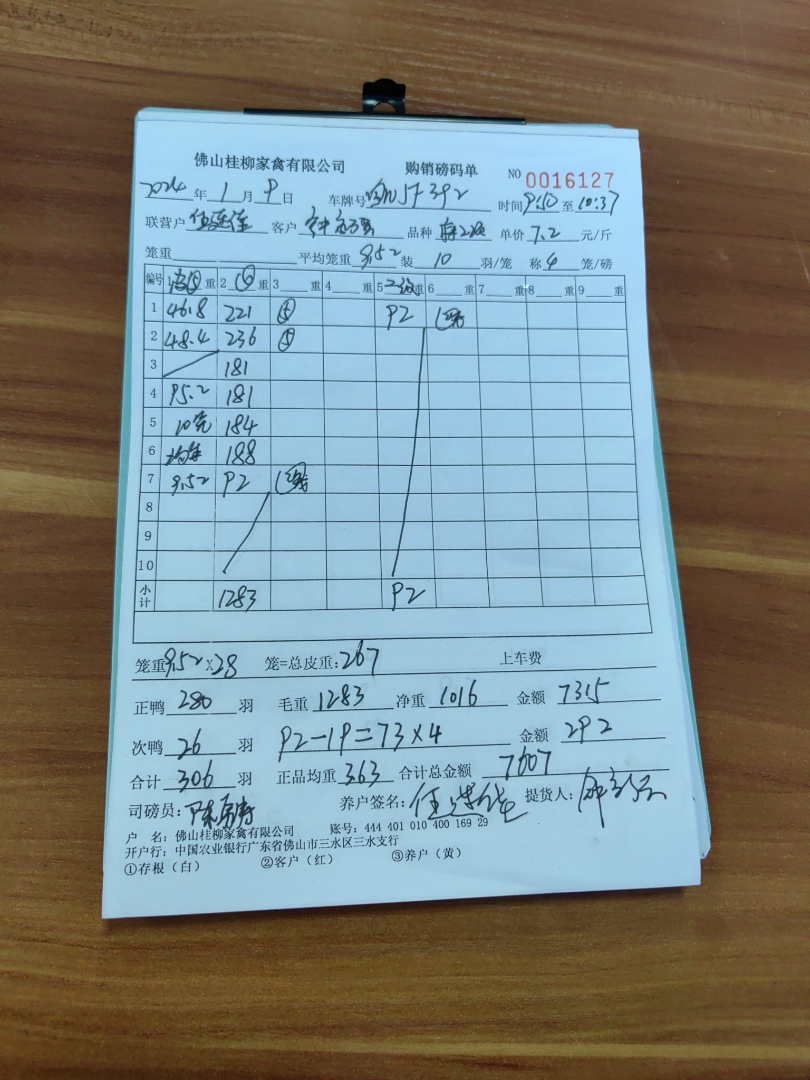 佛山桂柳家禽有限公司 购销磅码单 NO 0016127
2024 年 1 月 9 日 车牌号 57392 时间 9:50 至 10:37
联营户 客户 品种 单价 7.2 元/斤
笼重 平均笼重 9.52 装 10 羽/笼 称 4 笼/磅
编号 1 重 2 ④ 重 3 重 4 重 5 重 6 重 7 重 8 重 9 重
1 46.8 221 ⑤ 92
2 48.4 236 ⑤
3 181
4 95.2 181
5 10壳 184
6 188
7 9.52 92
8
9
10
小计 1283 92
笼重 9.52 X 28 笼=总皮重: 267 上车费
正鸭 280 羽 毛重 1283 净重 1016 金额 7315
次鸭 26 羽 92-19=73×4 金额 292
合计 306 羽 正品均重 3.63 合计总金额 7607
司磅员: 养户签名: 提货人:
户 名: 佛山桂柳家禽有限公司 账号: 444 401 010 400 169 29
开户行: 中国农业银行广东省佛山市三水区三水支行
①存根（白） ②客户（红） ③养户（黄）